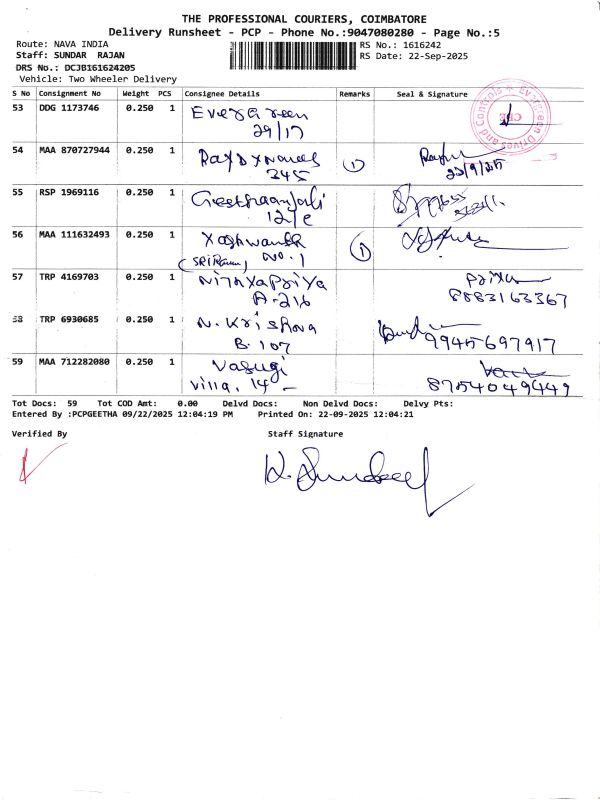 THE PROFESSIONAL COURIERS, COIMBATORE
Delivery Runsheet - PCP - Phone No.:9047080280 - Page No.:5
Route: NAVA INDIA RS No.: 1616242
Staff: SUNDAR RAJAN RS Date: 22-Sep-2025
DRS No.: DCJB161624205
Vehicle: Two Wheeler Delivery
S No Consignment No Weight PCS Consignee Details Remarks Seal & Signature
53 DDG 1173746 0.250 1 Evergreen
29/17
Evergreen Drives and Controls
CBE
54 MAA 870727944 0.250 1 1
345 22/9/25
55 RSP 1969116 0.250 1 Geethaanjali
12/c
56 MAA 111632493 0.250 1 Yashwanth 1
(SRI Ram, No. 1
57 TRP 4169703 0.250 1 Nithyapriya Priya
A-216 8883163367
58 TRP 6930685 0.250 1 N. Krishna
B. 107 9945697917
59 MAA 712282080 0.250 1 Vasugi
Villa. 14 - 8754049449
Tot Docs: 59 Tot COD Amt: 0.00 Delvd Docs: Non Delvd Docs: Delvy Pts:
Entered By :PCPGEETHA 09/22/2025 12:04:19 PM Printed On: 22-09-2025 12:04:21
Verified By Staff Signature